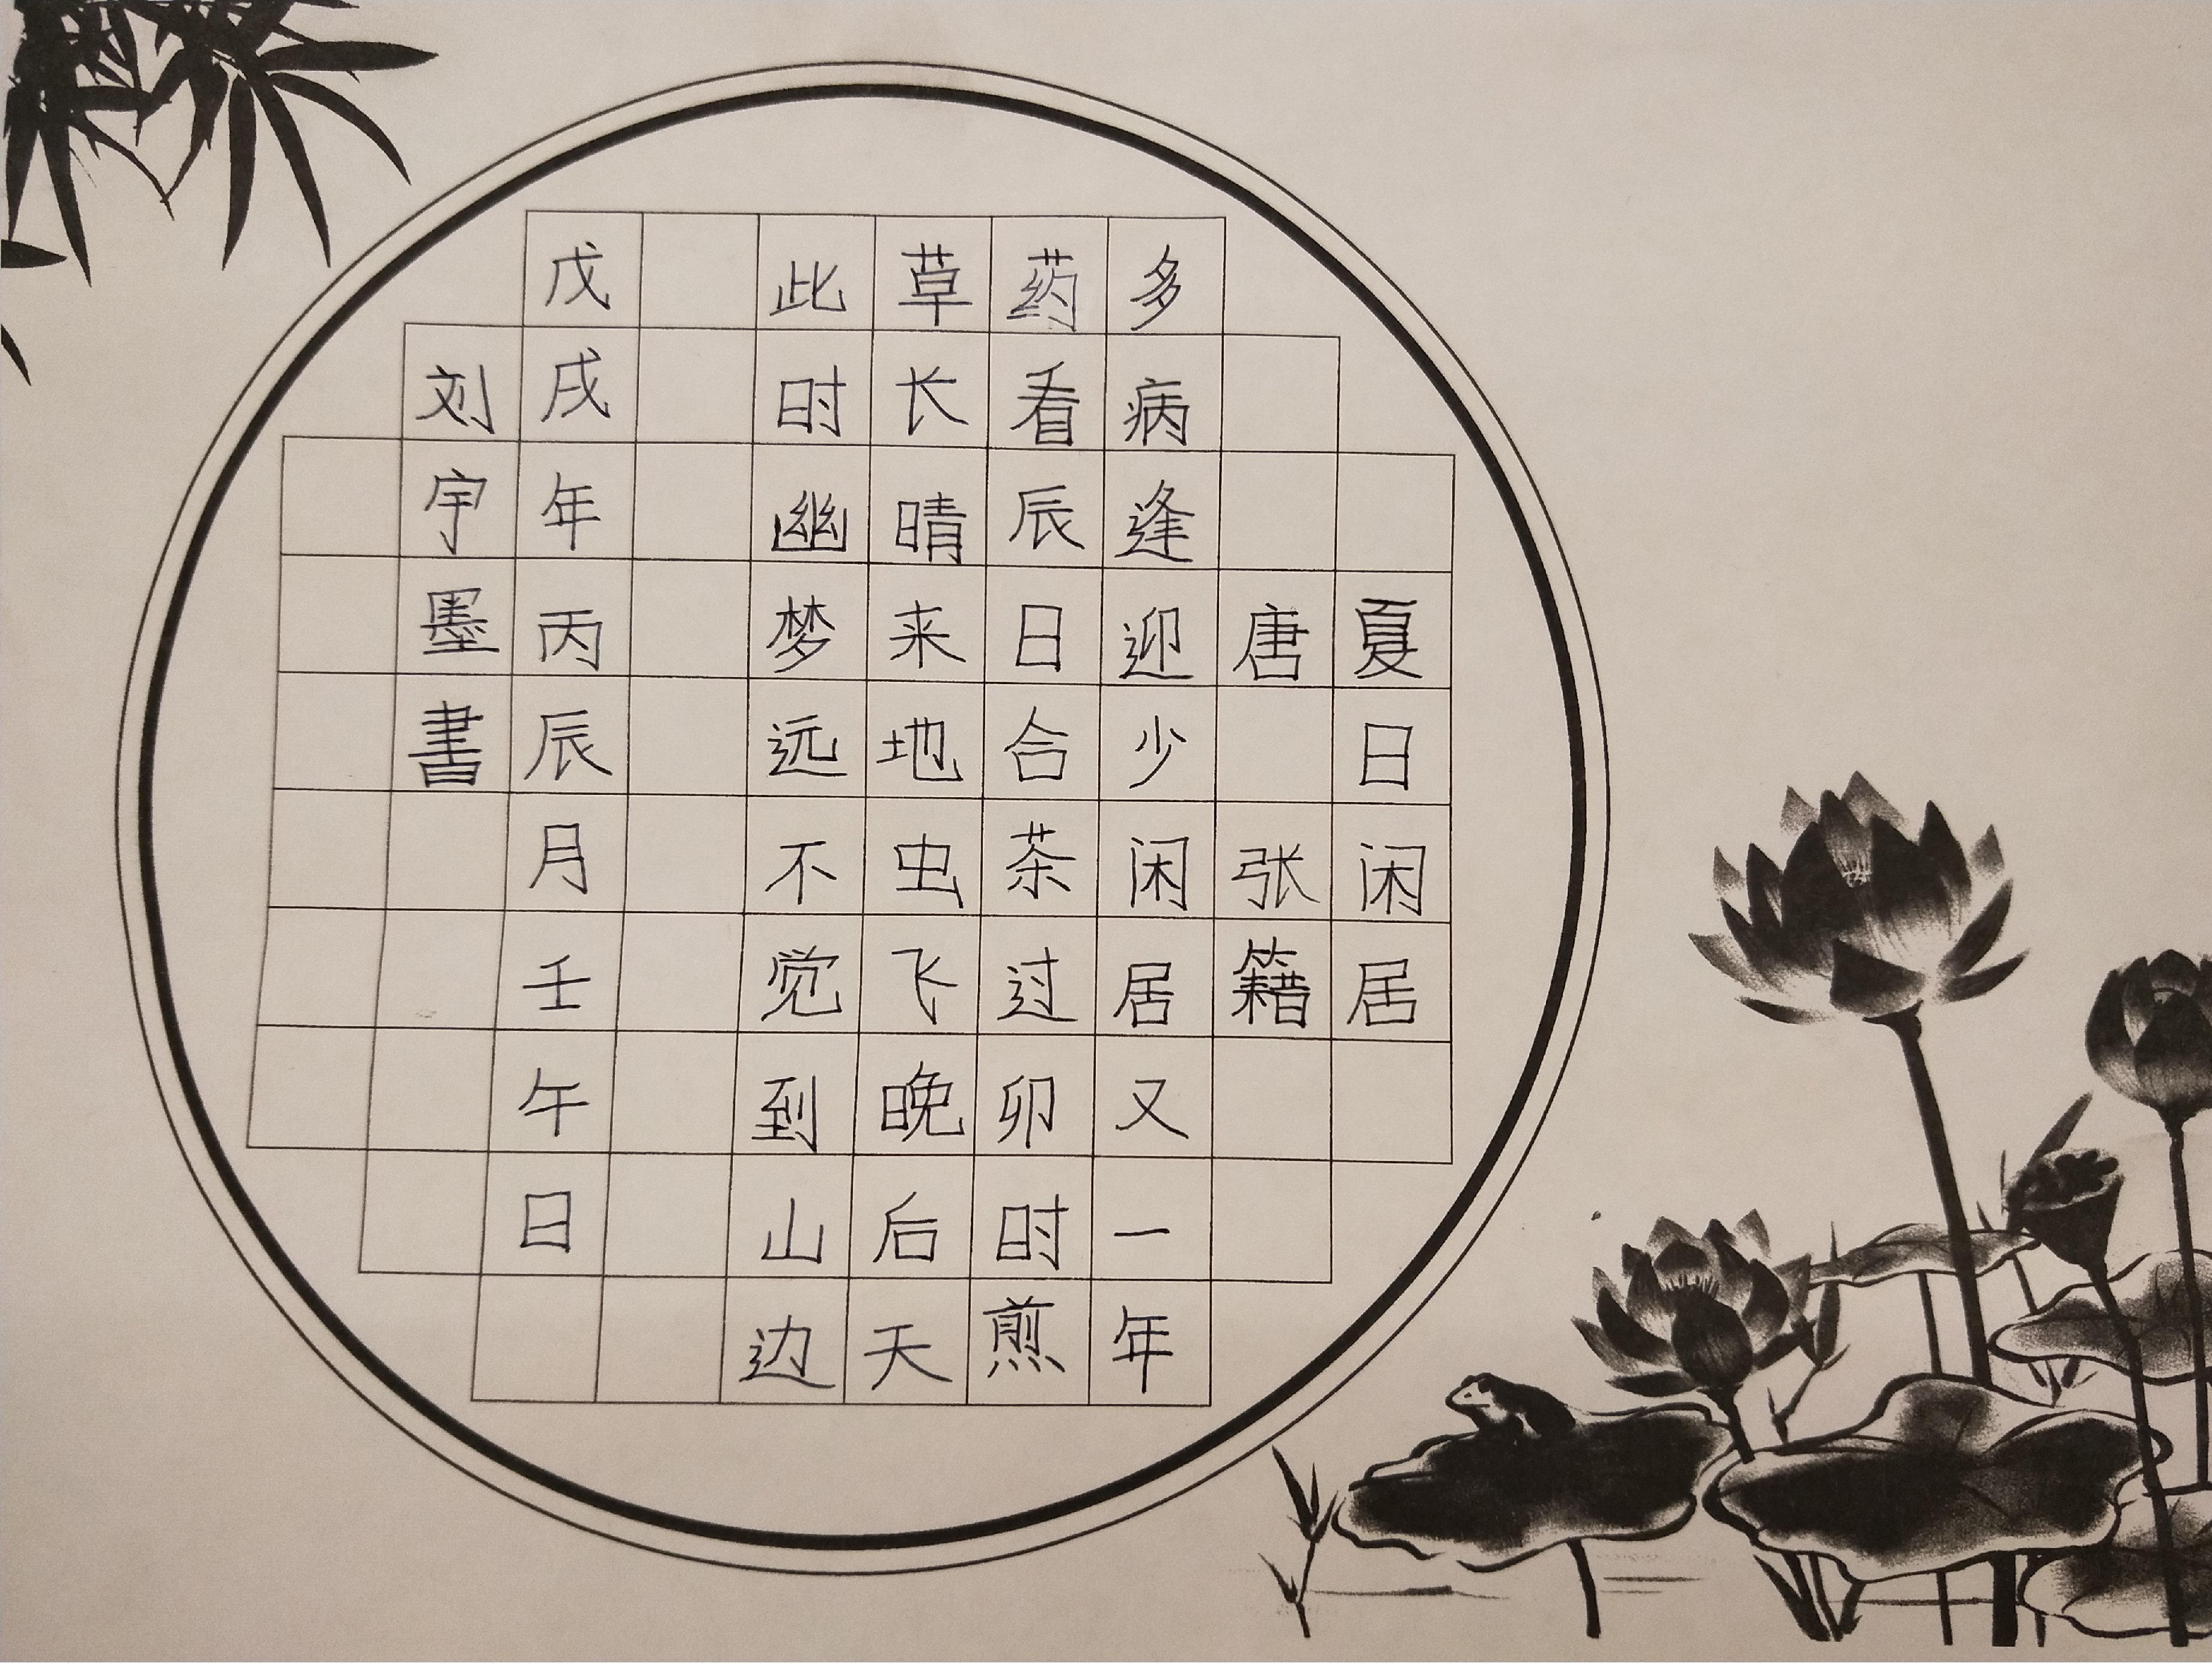 夏日闲居
唐 张籍
多病逢迎少闲居又一年
药看辰日合茶过卯时煎
草长晴来地虫飞晚后天
此时幽梦远不觉到山边
戊戌年丙辰月壬午日
刘宇墨書